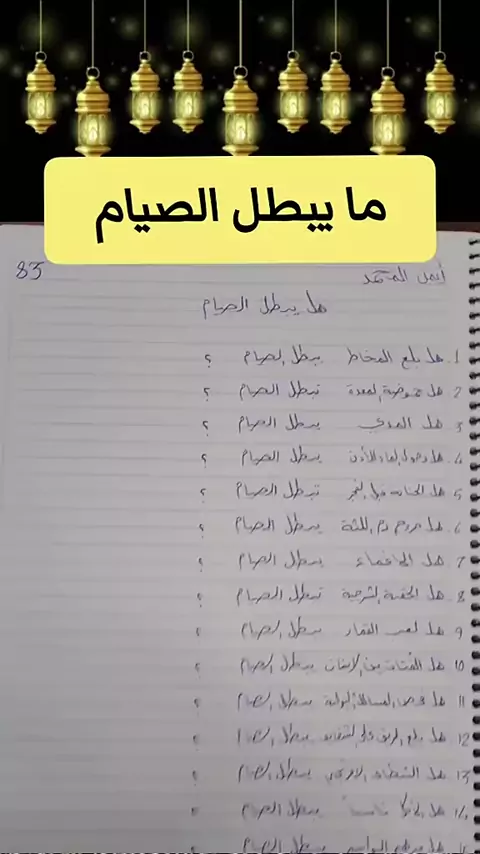 ما يبطل الصيام
أيمن المحمد 83
هل يبطل الصيام
1. هل بلع المخاط يبطل الصيام ؟
2. هل حموضة المعدة تبطل الصيام ؟
3. هل المذي يبطل الصيام ؟
4. هل دخول الماء للأذن يبطل الصيام ؟
5. هل الجنابة قبل الفجر تبطل الصيام ؟
6. هل خروج دم اللثة يبطل الصيام ؟
7. هل الإغماء يبطل الصيام ؟
8. هل الحقنة الشرجية تبطل الصيام ؟
9. هل لعب القمار يبطل الصيام ؟
10 هل الفتات بين الأسنان يبطل الصيام ؟
11 هل فحص المسالك البولية يبطل الصيام ؟
12 هل بلع الريق يبطل الصيام
13 هل يبطل الصيام ؟
14 هل ناسياً يبطل الصيام ؟
هل يبطل الصيام ؟